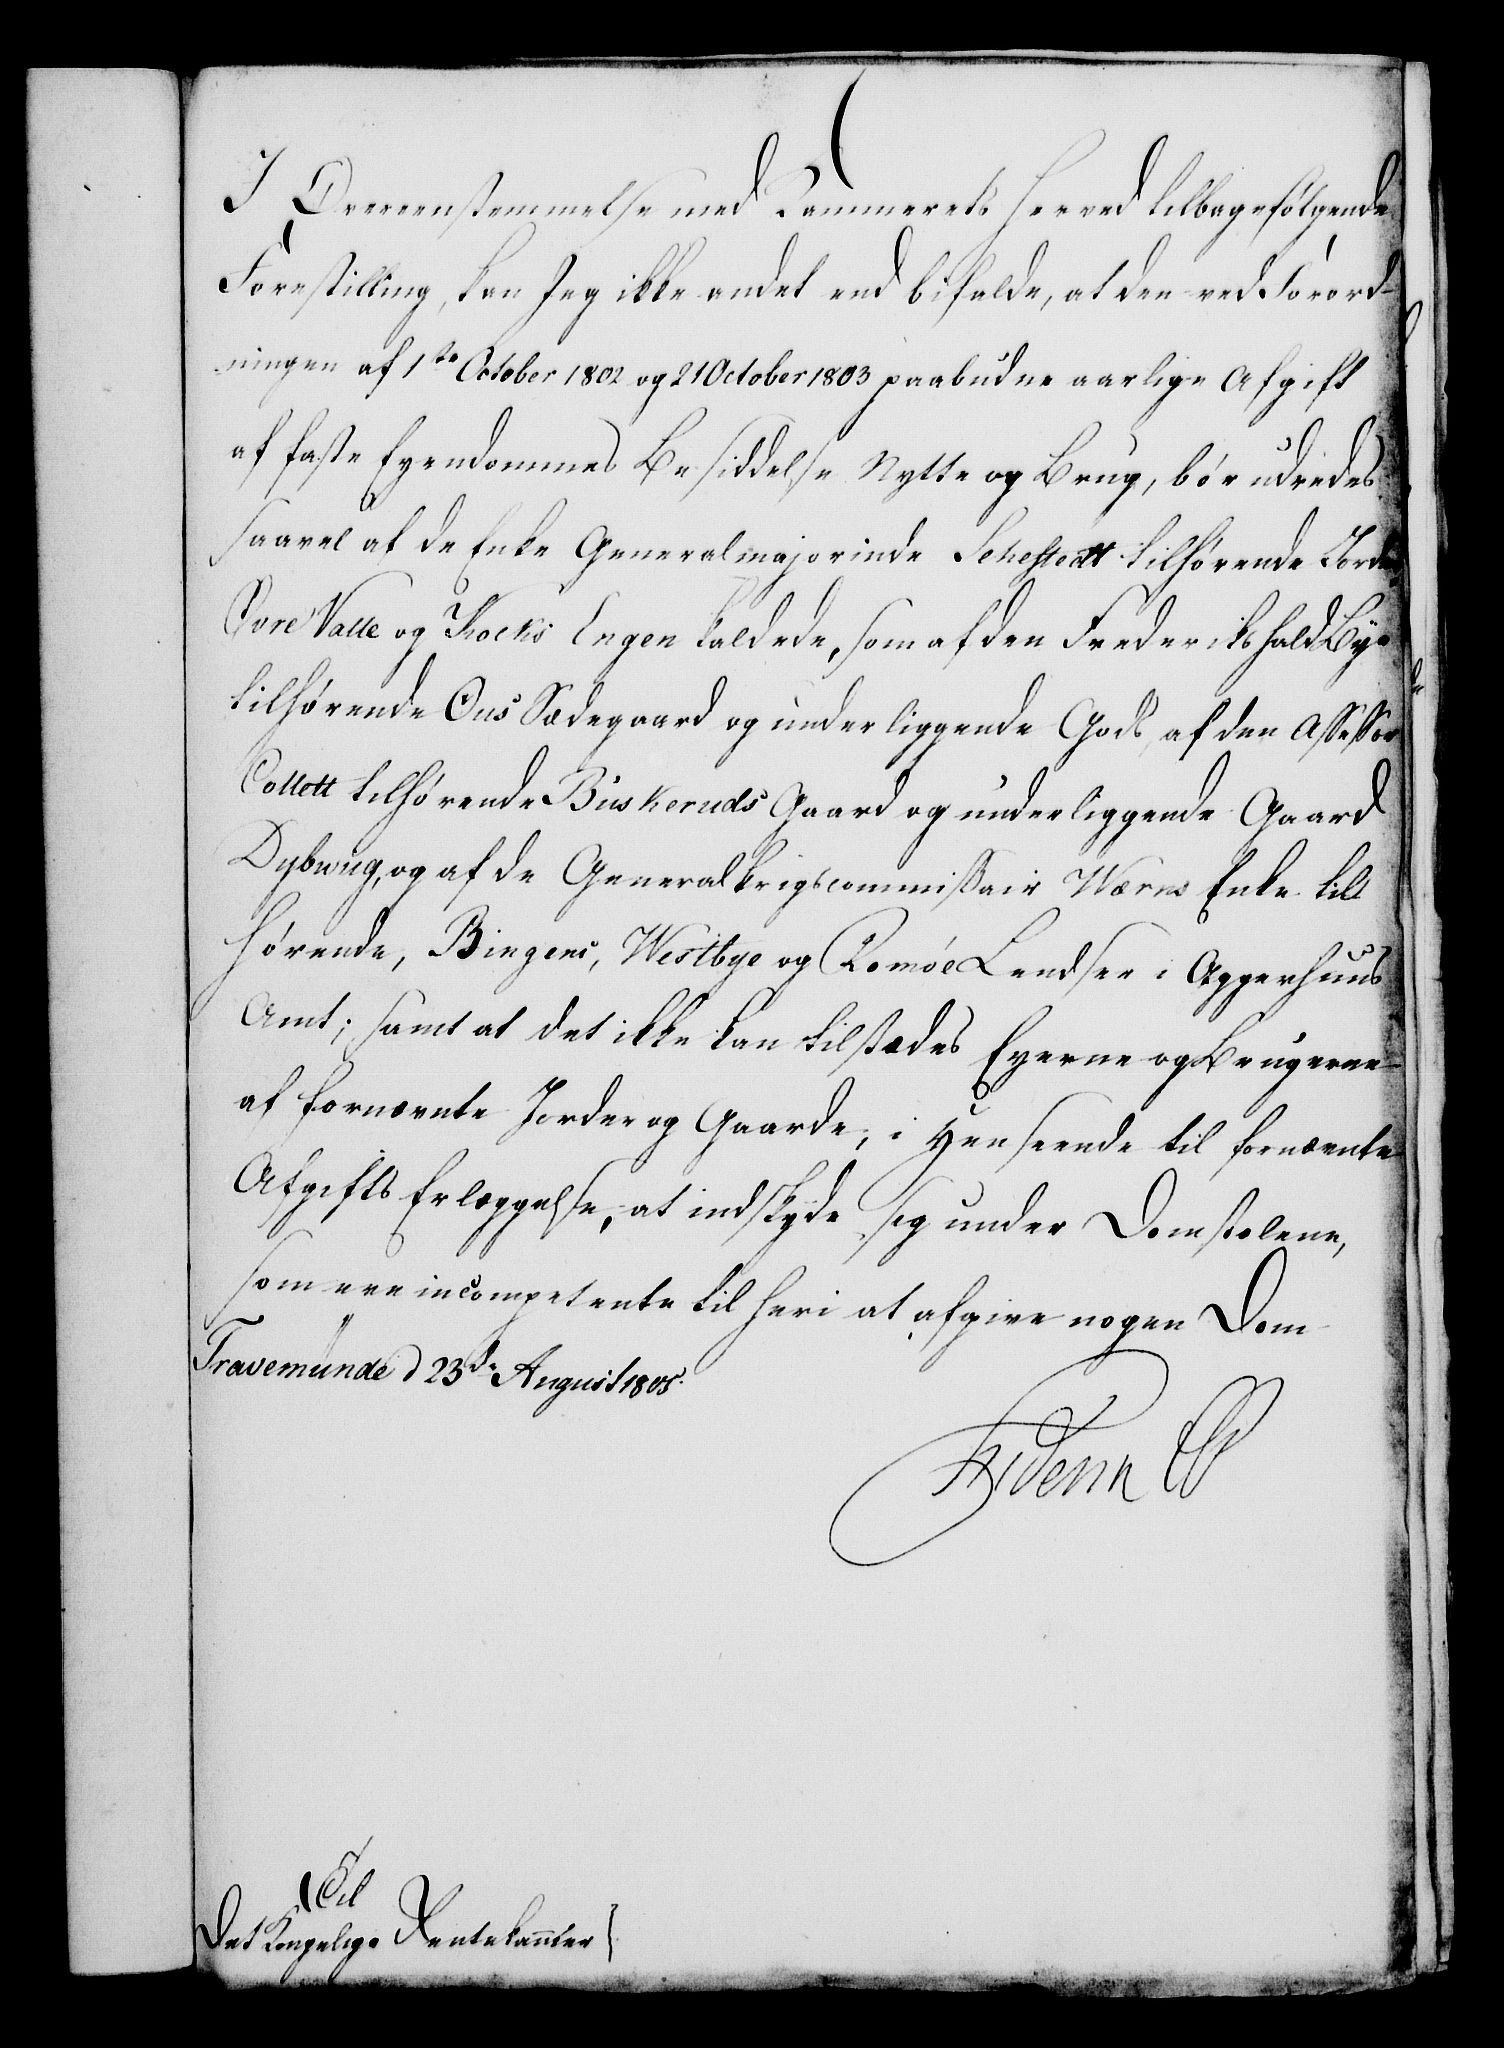 I Overeenstemmelse med Kammerets herved tilbagefølgende
Forestilling, kan Jeg ikke andet end bifalde, at den ved Forord-
ningen af 1ste October 1802 og 21 October 1803 paabudne aarlige Afgift
af faste Eyendommes Besiddelse Nytte og Brug, bør udredes
saavel af de Enke Generalmajorinde Sehestedt tilhørende Jorder
Øvre Valle og Kocks Engen kaldede, som af den Frederikshald Bye
tilhørende Ous Sædegaard og underliggende Gods, af den Assessor
Collett tilhørende Buskeruds Gaard og underliggende Gaard
Dybwig, og af de Generalkrigscommissair Wærns Enke til
hørende, Bingens, Westbye og Romøe Lendser i Aggershuus
Amt; samt at det ikke kan tilstædes Eyerne og Brugerne
af fornævnte Jorder og Gaarde, i Henseende til fornævnte
Afgifts Erlæggelse, at indskyde sig under Domstolene,
som ere incompetente til heri at afgive nogen Dom
Travemünde d 23de August 1805.
Friderik
Til
Det Kongelige Rentekammer